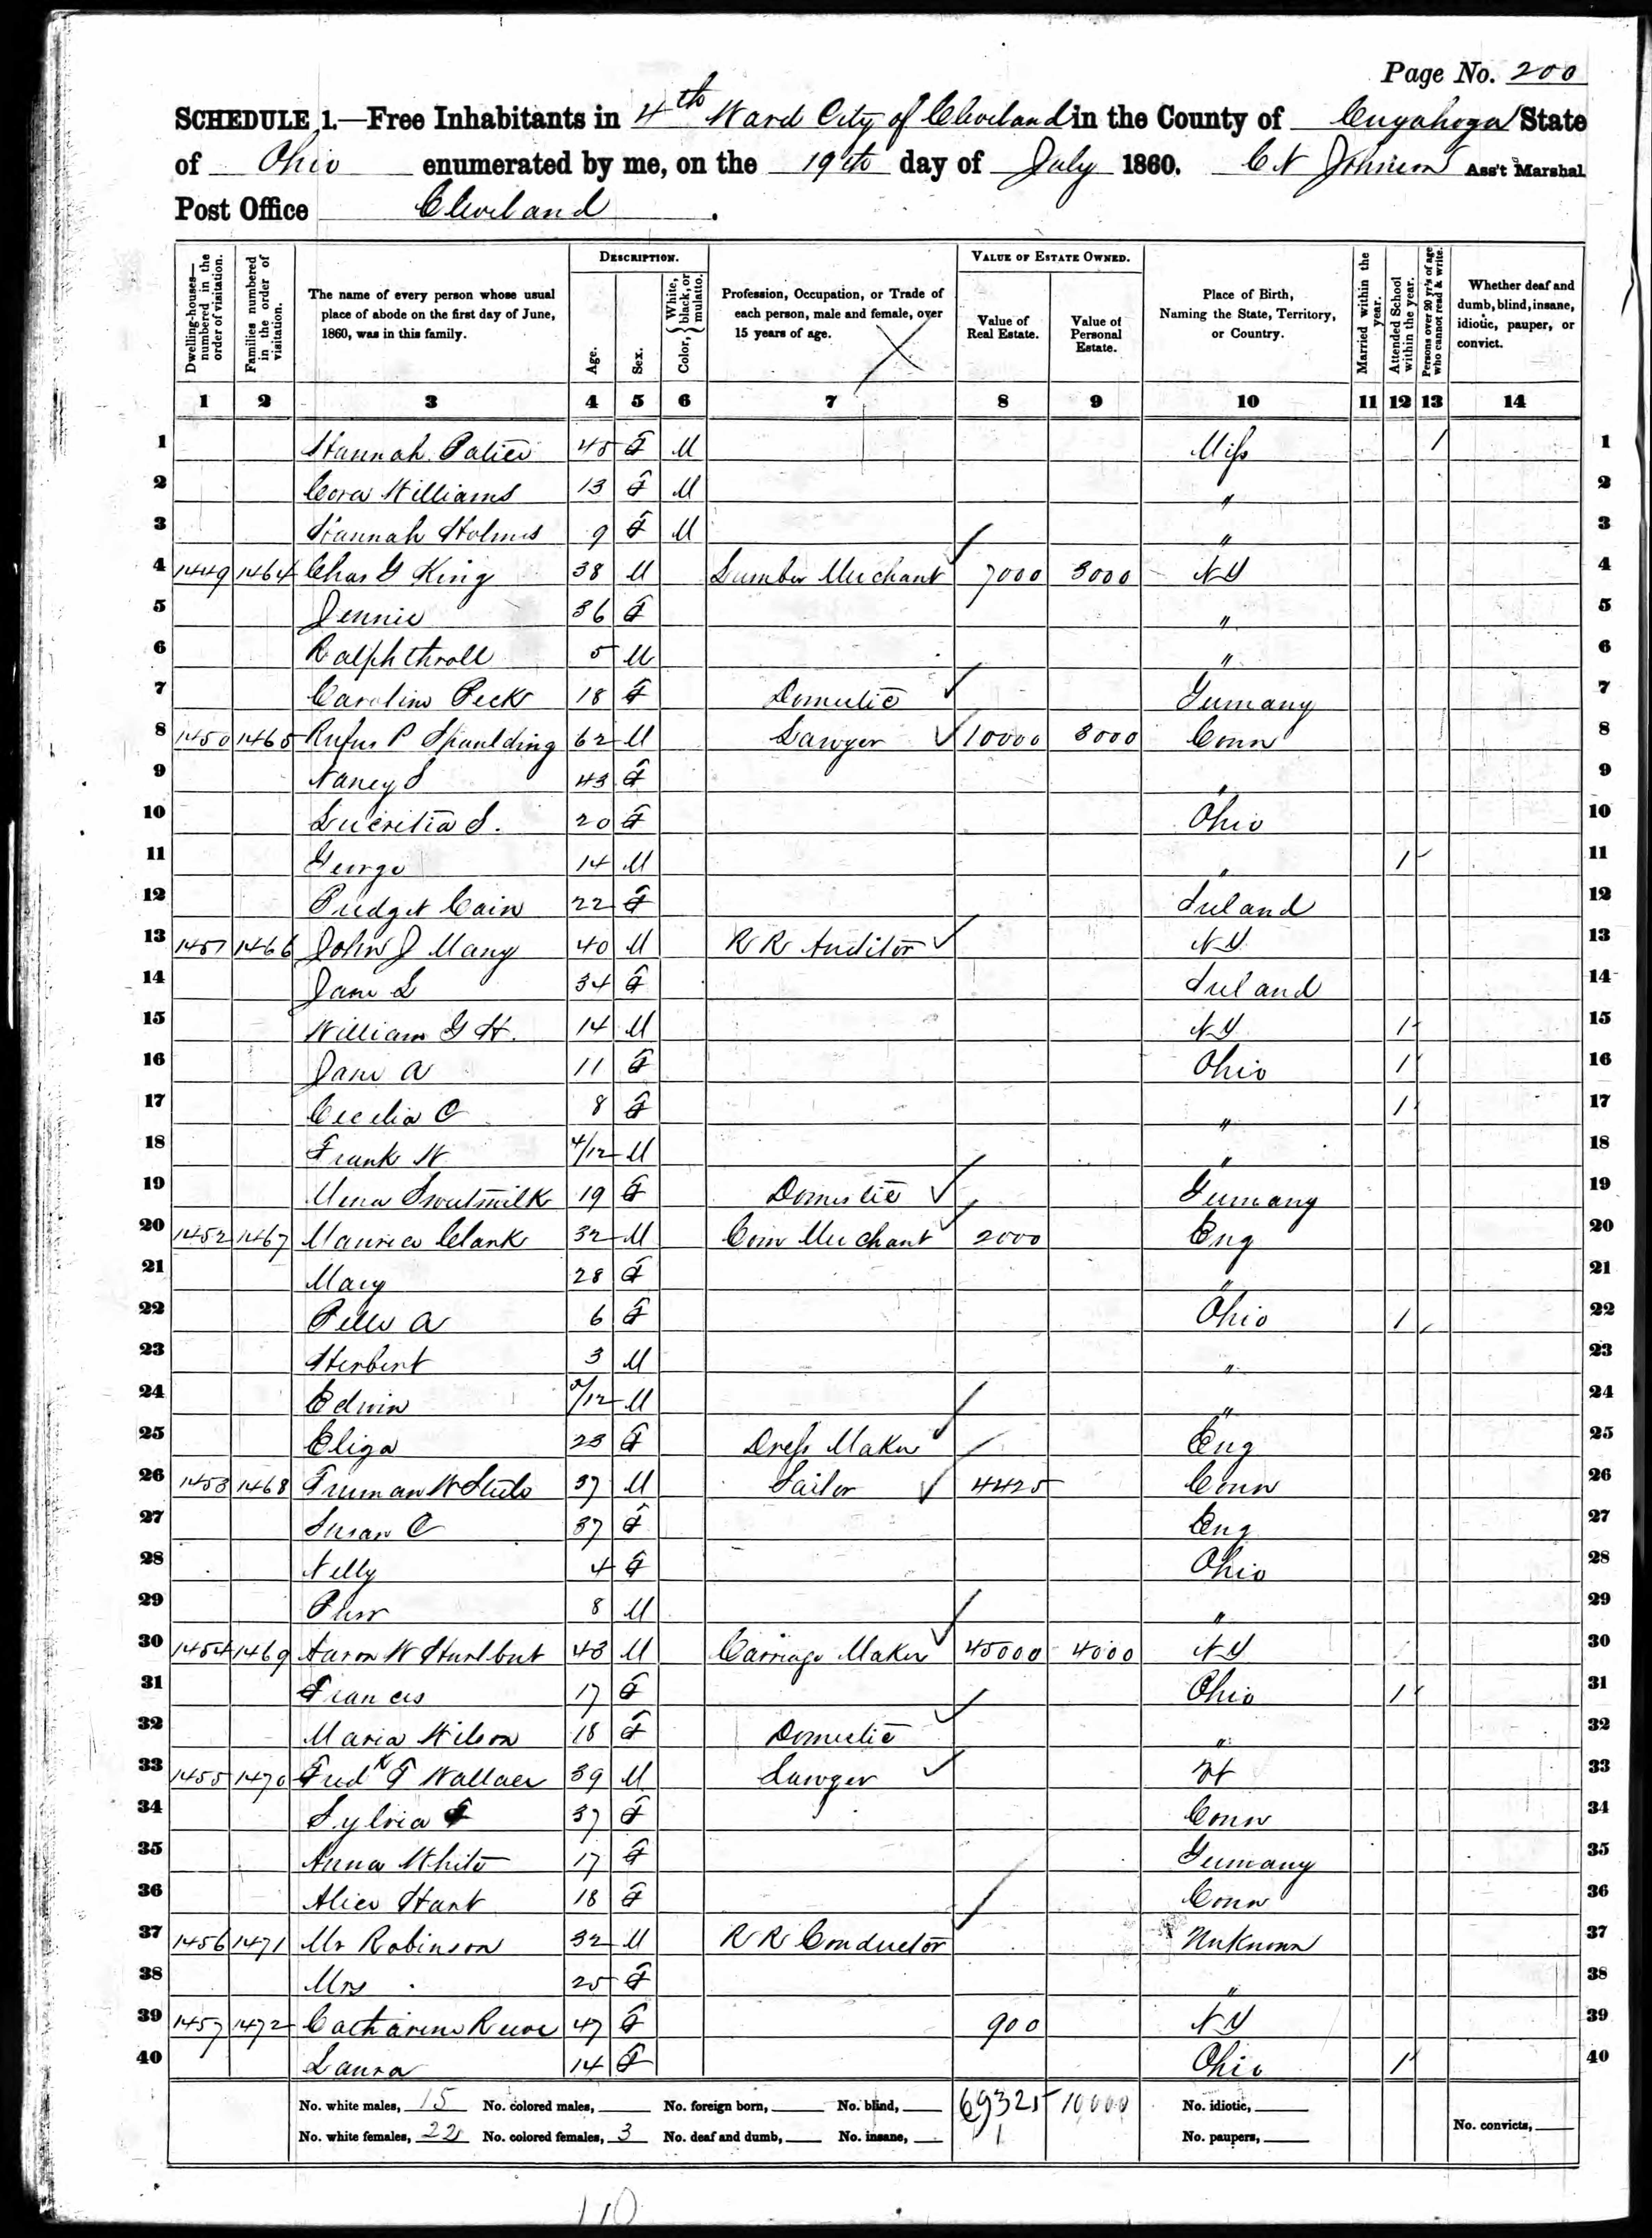 Page No. 200
SCHEDULE 1.—Free Inhabitants in 4th Ward City of Cleveland in the County of Cuyahoga State
of Ohio enumerated by me, on the 19th day of July 1860. C N Johnson Ass't Marshal.
Post Office Cleveland.
Dwelling-houses—numbered in the order of visitation.
Families numbered in the order of visitation.
The name of every person whose usual place of abode on the first day of June, 1860, was in this family.
DESCRIPTION.
Age.
Sex.
Color, { White, black, or mulatto.
Profession, Occupation, or Trade of each person, male and female, over 15 years of age.
VALUE OF ESTATE OWNED.
Value of Real Estate.
Value of Personal Estate.
Place of Birth, Naming the State, Territory, or Country.
Married within the year.
Attended School within the year.
Persons over 20 y'rs of age who cannot read & write.
Whether deaf and dumb, blind, insane, idiotic, pauper, or convict.
1 2 3 4 5 6 7 8 9 10 11 12 13 14
1 Hannah 45 F M Miss / 1
2 Cora Williams 13 F M " 2
3 Hannah Holmes 9 F M " 3
4 1449 1464 Chas G King 38 M Lumber Merchant 7000 3000 N Y 4
5 Jennie 36 F " 5
6 Ralph throll 5 M " 6
7 Caroline Peck 18 F Domestic Germany 7
8 1450 1465 Rufus P Spaulding 62 M Lawyer 10000 3000 Conn 8
9 Nancy S 43 F " 9
10 Lucretia S. 20 F Ohio 10
11 George 14 M " 1 11
12 Bridget Cain 22 F Ireland 12
13 1451 1466 John J Many 40 M R R Auditor N Y 13
14 Jane L 34 F Ireland 14
15 William G H. 14 M N Y 1 15
16 Jane A 11 F Ohio 1 16
17 Cecelia C 8 F " 1 17
18 Frank W 4/12 M " 18
19 Mena 19 F Domestic Germany 19
20 1452 1467 Maurice Clark 32 M Com Merchant 2000 Eng 20
21 Mary 28 F " 21
22 A 6 F Ohio 1 22
23 Herbert 3 M " 23
24 Edwin /12 M " 24
25 Eliza 23 F Dress Maker Eng 25
26 1453 1468 Truman W 37 M Sailor 4425 Conn 26
27 Susan C 37 F Eng 27
28 Nelly 4 F Ohio 28
29 8 M " 29
30 1454 1469 Aaron W Hurlbut 43 M Carriage Maker 45000 4000 N Y 30
31 Frances 17 F Ohio 1 31
32 Maria Wilson 18 F Domestic " 32
33 1455 1470 Fredk T Wallace 39 M Lawyer Vt 33
34 Sylvia F 37 F Conn 34
35 Anna White 17 F Germany 35
36 Alice Hart 18 F Conn 36
37 1456 1471 Mr Robinson 32 M R R Conductor Unknown 37
38 Mrs 25 F " 38
39 1457 1472 Catharine Reeve 47 F 900 N Y 39
40 Laura 14 F Ohio 1 40
No. white males, 15 No. colored males, No. foreign born, No. blind, 69325 10000 No. idiotic,
No. white females, 22 No. colored females, 3 No. deaf and dumb, No. insane, 1 No. paupers, No. convicts,
110